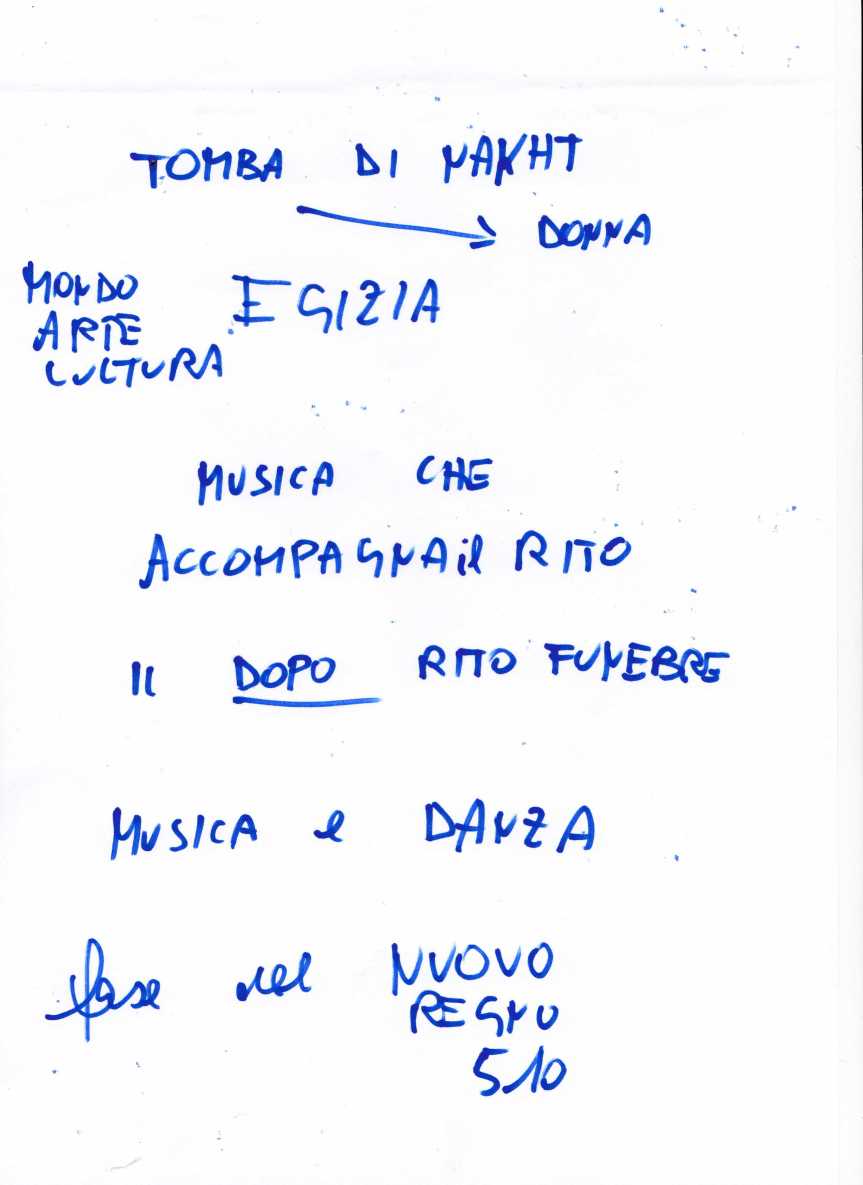 TOMBA DI NAKHT
DONNA
MONDO
ARTE
CULTURA
EGIZIA
MUSICA CHE
ACCOMPAGNA il RITO
Il DOPO RITO FUNEBRE
MUSICA e DANZA
fase nel NUOVO
REGNO
510